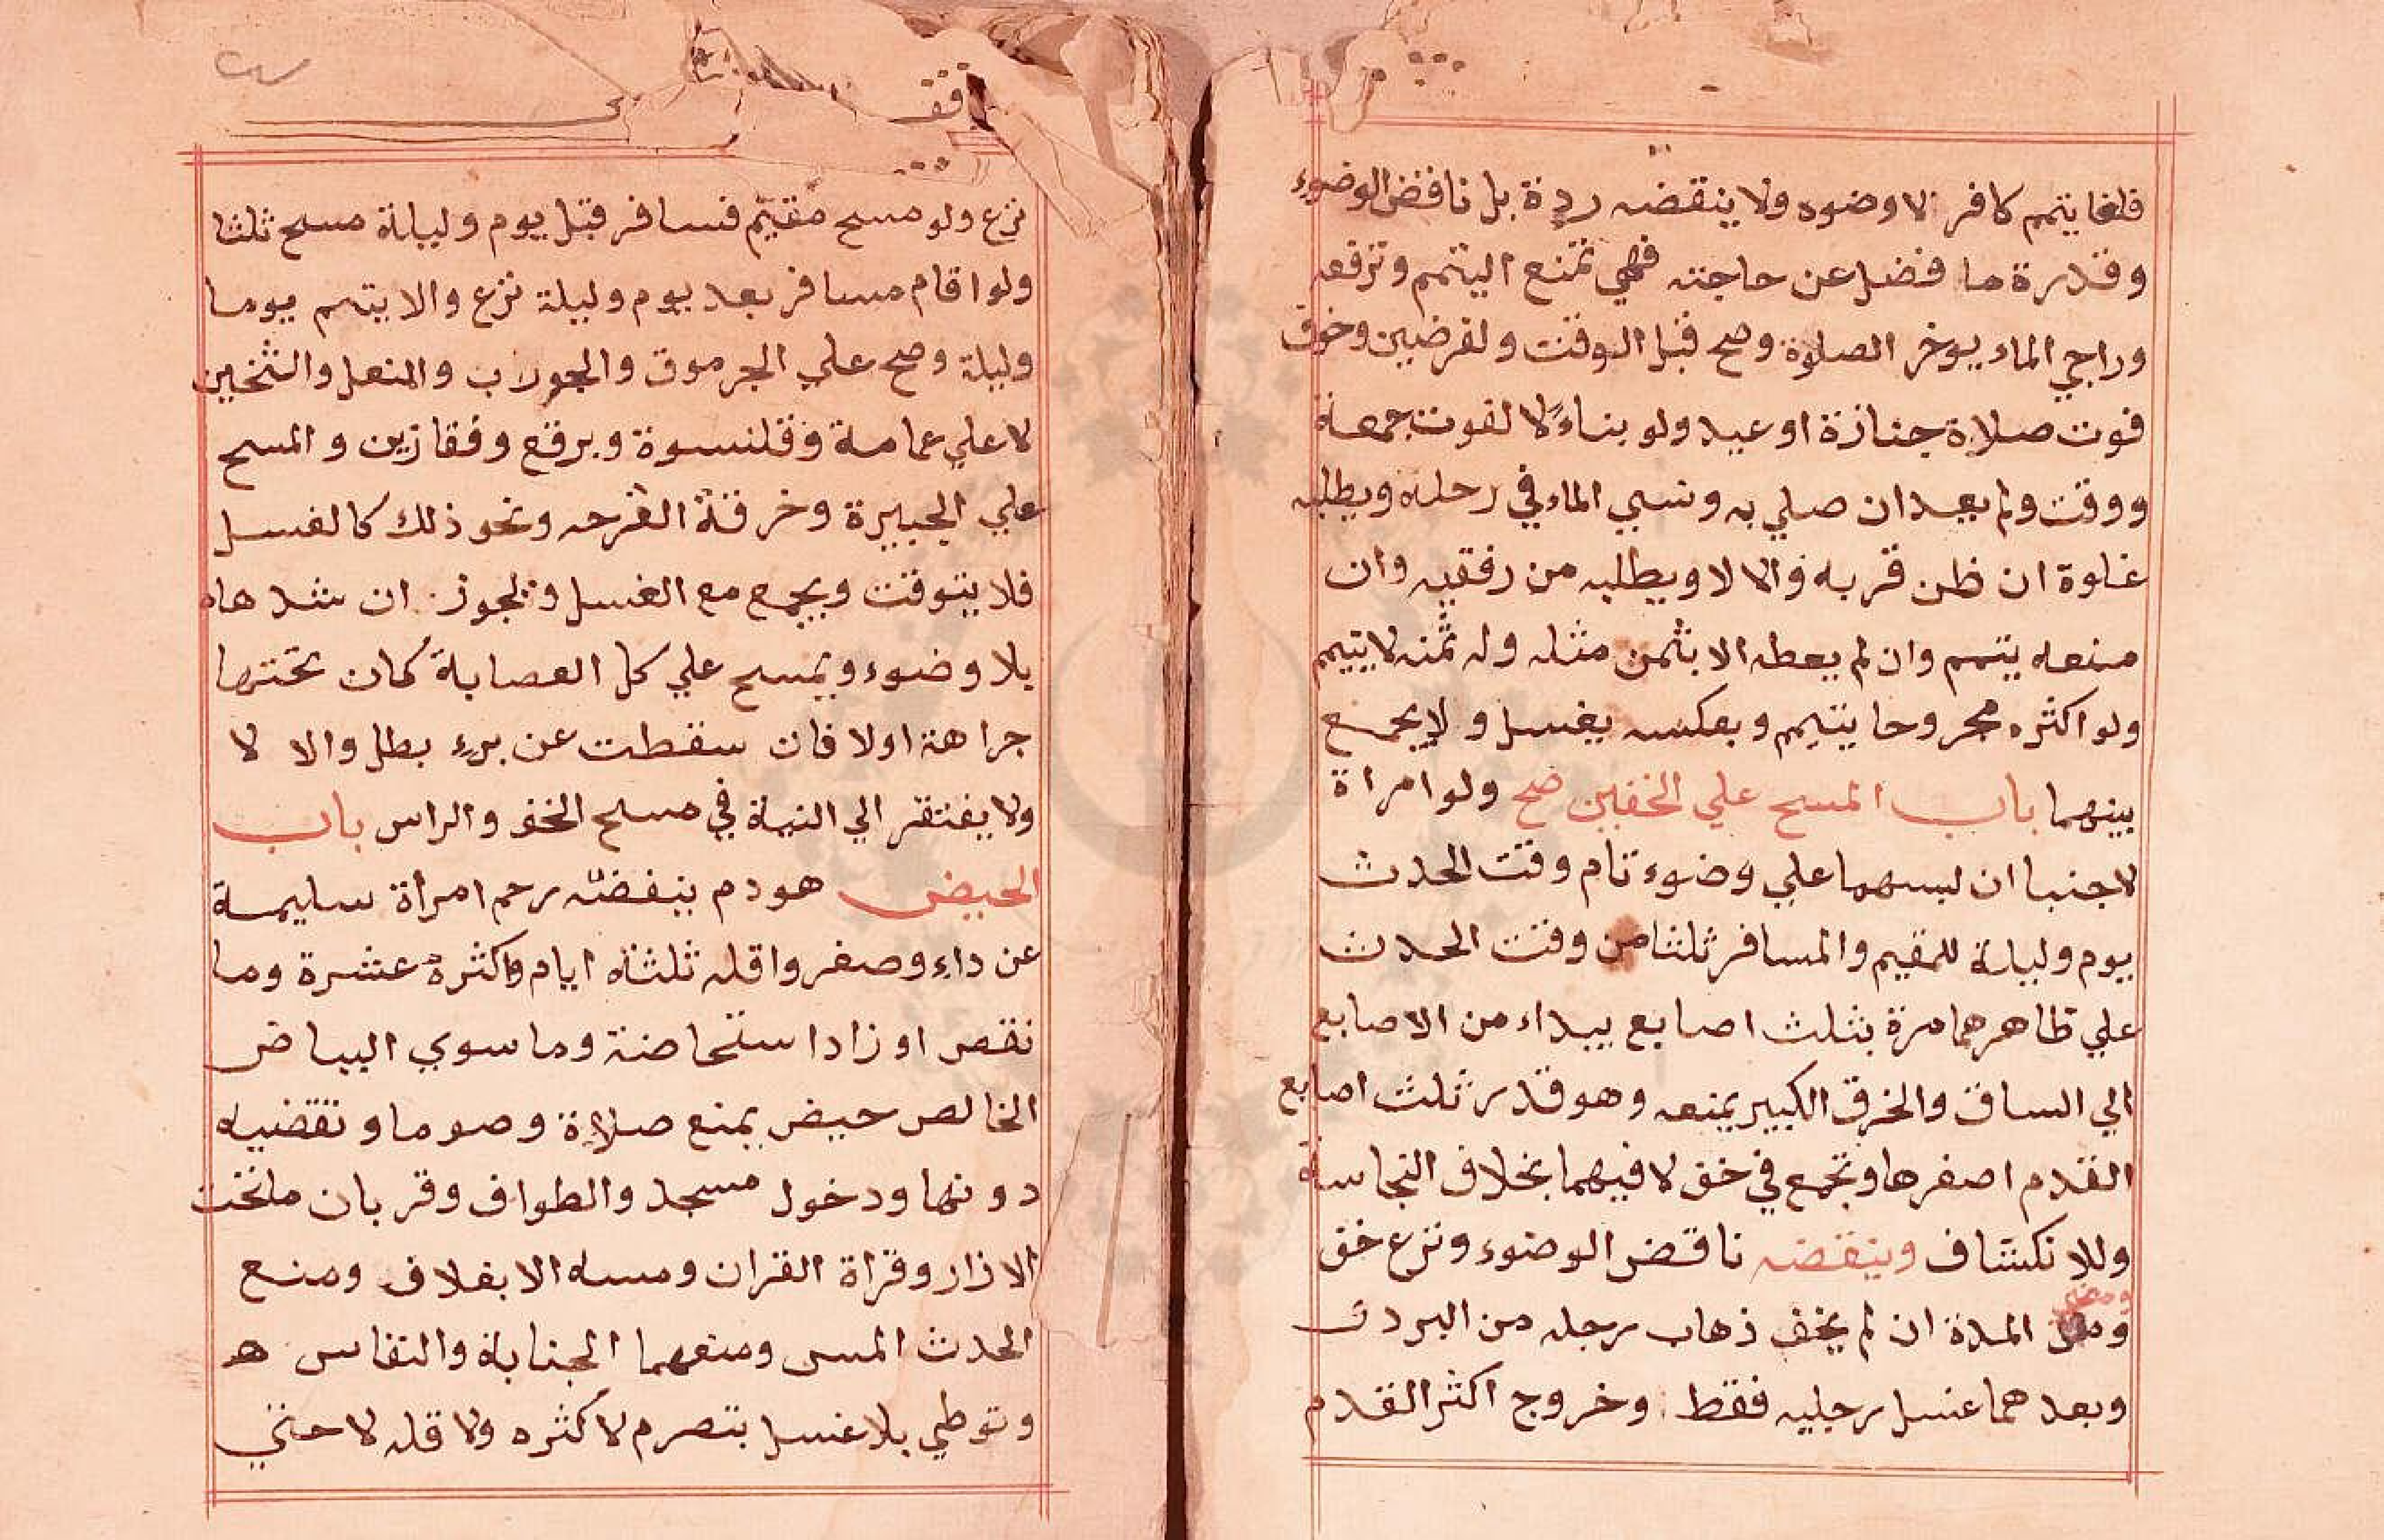 فلغا يتمم كافر لا وضوه ولا ينقضه ردة بل ناقض الوضوء
وقدرة ما فضل عن حاجته فهي تمنع التيمم وترفعه
وراجي الماء يوخر الصلوة وصح قبل الوقت ولفرضين وخوف
فوت صلاة جنازة او عيد ولو بناءً لا لفوت جمعة
ووقت ولم يعد ان صلي به ونسي الماء في رحله ويطلبه
غلوة ان ظن قربه والا لا ويطلبه من رفقيه وان
منعه يتمم وان لم يعطه الا بثمن مثله وله ثمنه لا يتيمم
ولو اكثره مجروحا يتيمم وبعكسه يغسل ولا يجمع
بينهما باب المسح علي الخفين صح ولو امراة
لا جنبا ان لبسهما علي وضوء تام وقت الحدث
يوم وليلة للمقيم والمسافر ثلثا من وقت الحدث
علي ظاهرهما مرة بثلث اصابع يبداء من الاصابع
الي الساق والخرق الكبير يمنعه وهو قدر ثلث اصابع
القدم اصغرها وتجمع في خف لا فيهما بخلاف النجاسة
وللانكشاف وينقضه ناقض الوضوء ونزع خف
ومضي
المدة ان لم يخف ذهاب رجله من البرد
وبعدهما غسل رجليه فقط وخروج اكثر القدم
نزع ولو مسح مقيم فسافر قبل يوم وليلة مسح ثلثا
ولو اقام مسافر بعد يوم وليلة نزع والا يتمم يوما
وليلة وصح علي الجرموق والجوراب والمنعل والثخين
لا علي عمامة وقلنسوة وبرقع وقفازين والمسح
علي الجبيرة وخرقة القرحه ونحو ذلك كالغسل
فلا يتوقت ويجمع مع الغسل ويجوز ان شدها
بلا وضوء ويمسح علي كل العصابة كان تحتها
جراهة اولا فان سقطت عن برء بطل والا لا
ولا يفتقر الي النية في مسح الخف والراس باب
الحيض هو دم ينفضه رحم امرأة سليمة
عن داء وصغر واقله ثلثة ايام واكثره عشرة وما
نقص او زاد استحاضة وما سوي البياض
الخالص حيض يمنع صلاة وصوما وتقضيه
دونها ودخول مسجد والطواف وقربان ماتحت
الازار وقراة القران ومسه الا بغلاف ومنع
الحدث المس ومنعهما الجنابة والنفاس
وتوطي بلا غسل بتصرم لاكثره ولا قله لا حتي